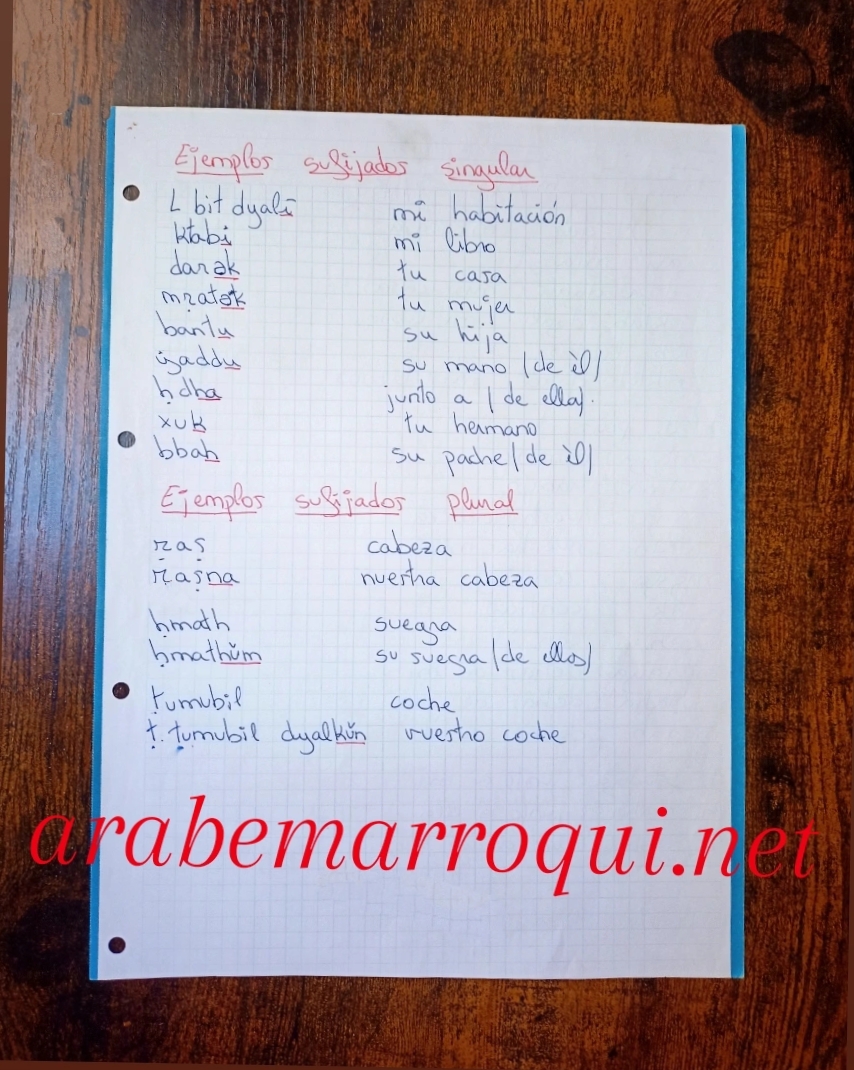 Ejemplos sufijados singular
L bit dyali mi habitación
ktabi mi libro
darək tu casa
mṛatək tu mujer
bantu su hija
iyaddu su mano (de èl)
ḥdha junto a (de ella).
xuk tu hermano
bbah su padre (de èl)
Ejemplos sufijados plural
ṛaṣ cabeza
ṛaṣna nuestra cabeza
ḥmath suegra
ḥmathŭm su suegra (de ellos)
ṭumubil coche
ṭ.ṭumubil dyalkŭn vuestro coche
arabemarroqui.net